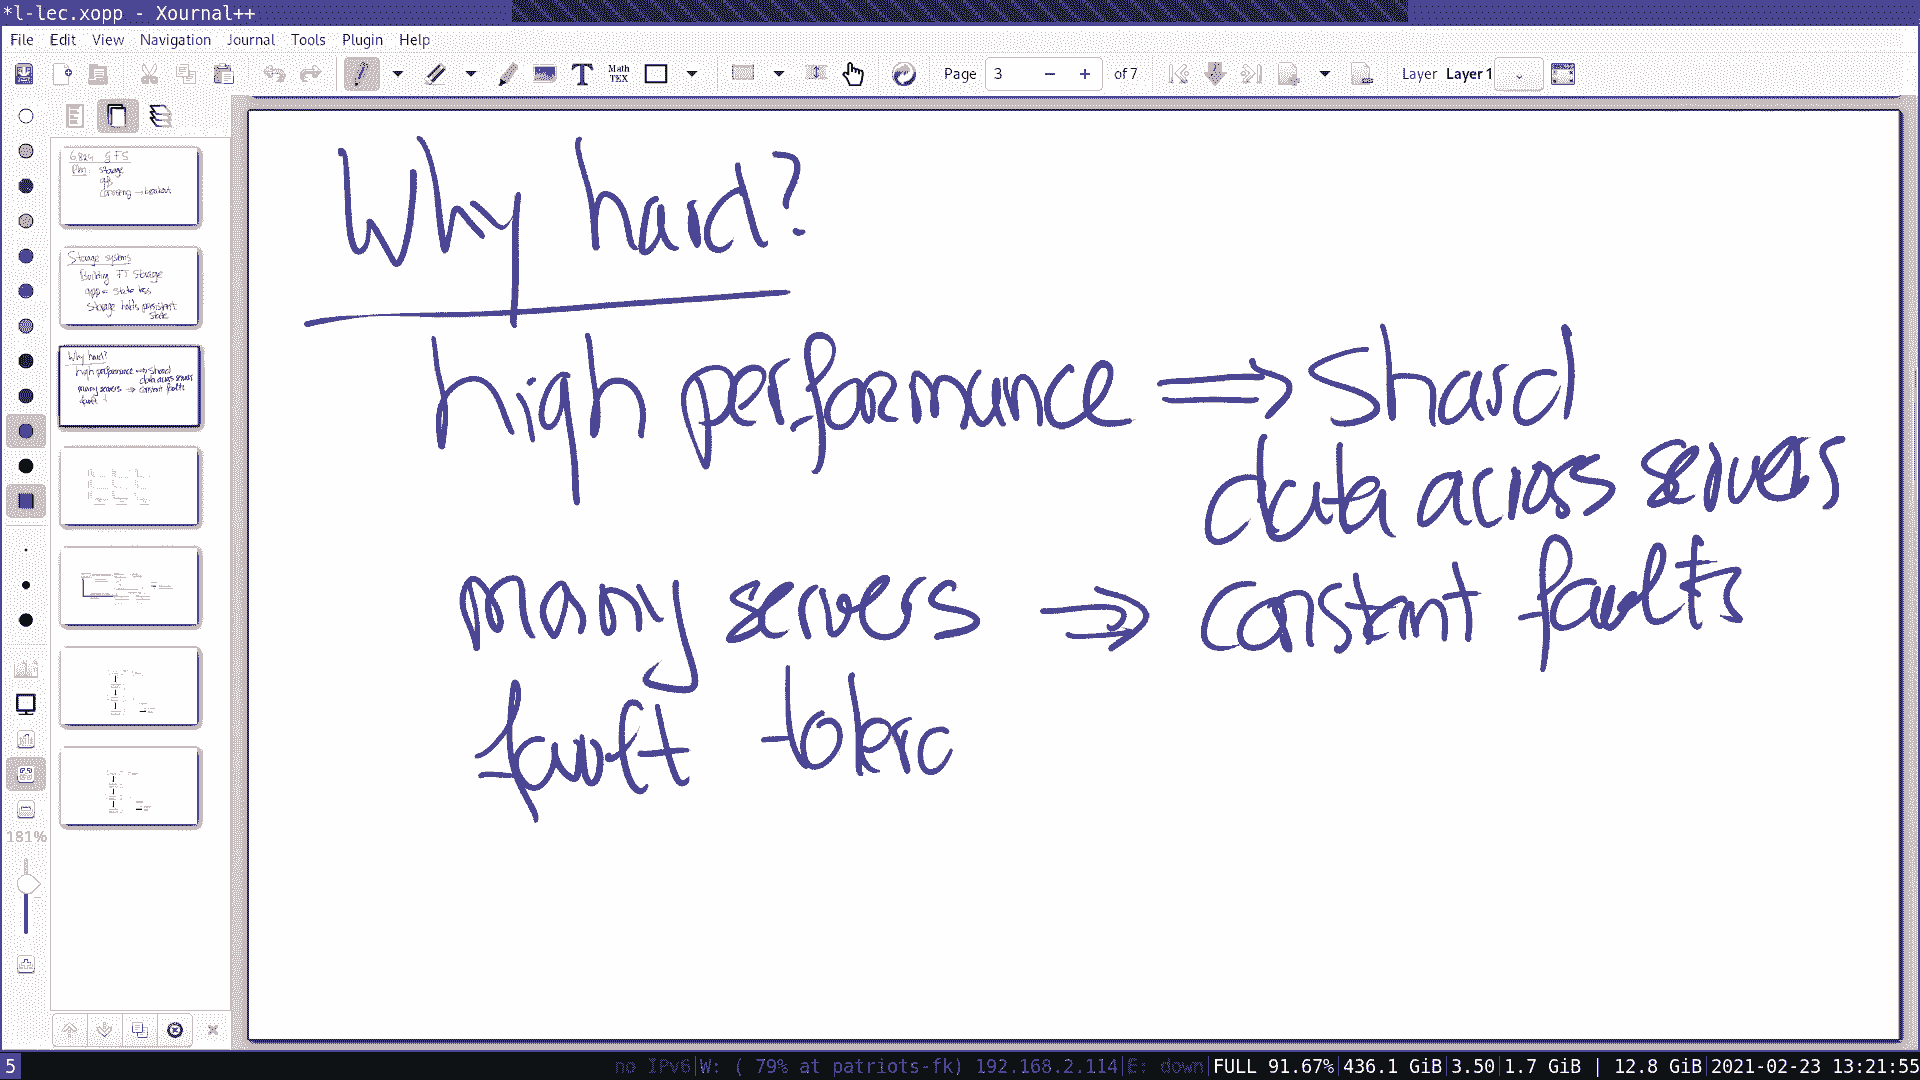 *l-lec.xopp - Xournal++
File Edit View Navigation Journal Tools Plugin Help
Math
TEX
Page 3 of 7
Layer Layer 1
6.824 GFS
Plan: storage
GFS
Storage systems
Building FT storage
app = stateless
storage holds persistent
state
Why hard?
high performance => shard
data across servers
many servers => constant faults
fault t
Why hard?
high performance => shard
data across servers
many servers => constant faults
fault tolerc
181%
5
no IPv6|W: ( 79% at patriots-fk) 192.168.2.114|E: down|FULL 91.67%|436.1 GiB|3.50|1.7 GiB | 12.8 GiB|2021-02-23 13:21:55